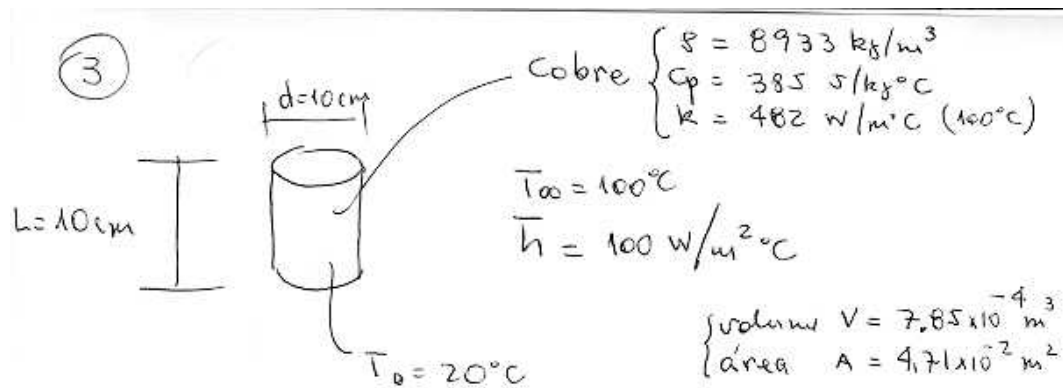 3
d=10cm
L=10cm
Cobre
ρ = 8933 kg/m³
Cp = 385 J/kg°C
k = 482 W/m°C (100°C)
T∞ = 100°C
h̅ = 100 W/m²°C
T₀ = 20°C
volume V = 7.85x10⁻⁴ m³
área A = 4,71x10⁻² m²